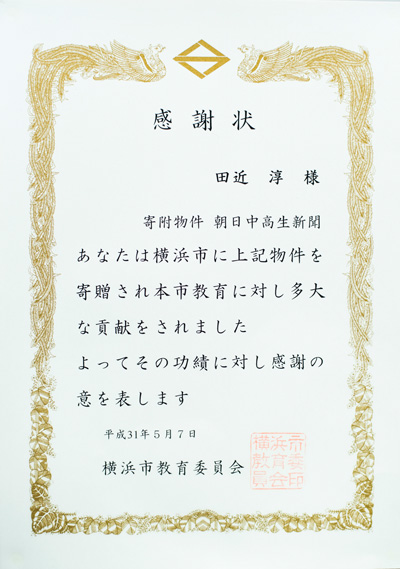 感謝状
田近 淳 様
寄附物件 朝日中高生新聞
あなたは横浜市に上記物件を
寄贈され本市教育に対し多大
な貢献をされました
よってその功績に対し感謝の
意を表します
平成31年5月7日
横浜市教育委員会
横浜市
教育委
員会印